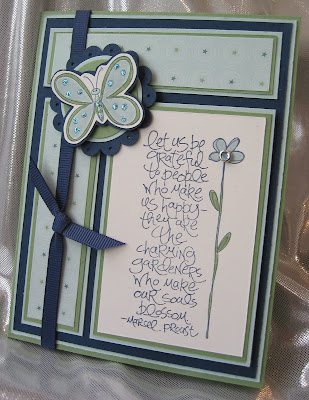 let us be
grateful
to people
who make
us happy-
they are
the
charming
gardeners
who make
our souls
blossom.
-Marcel Proust